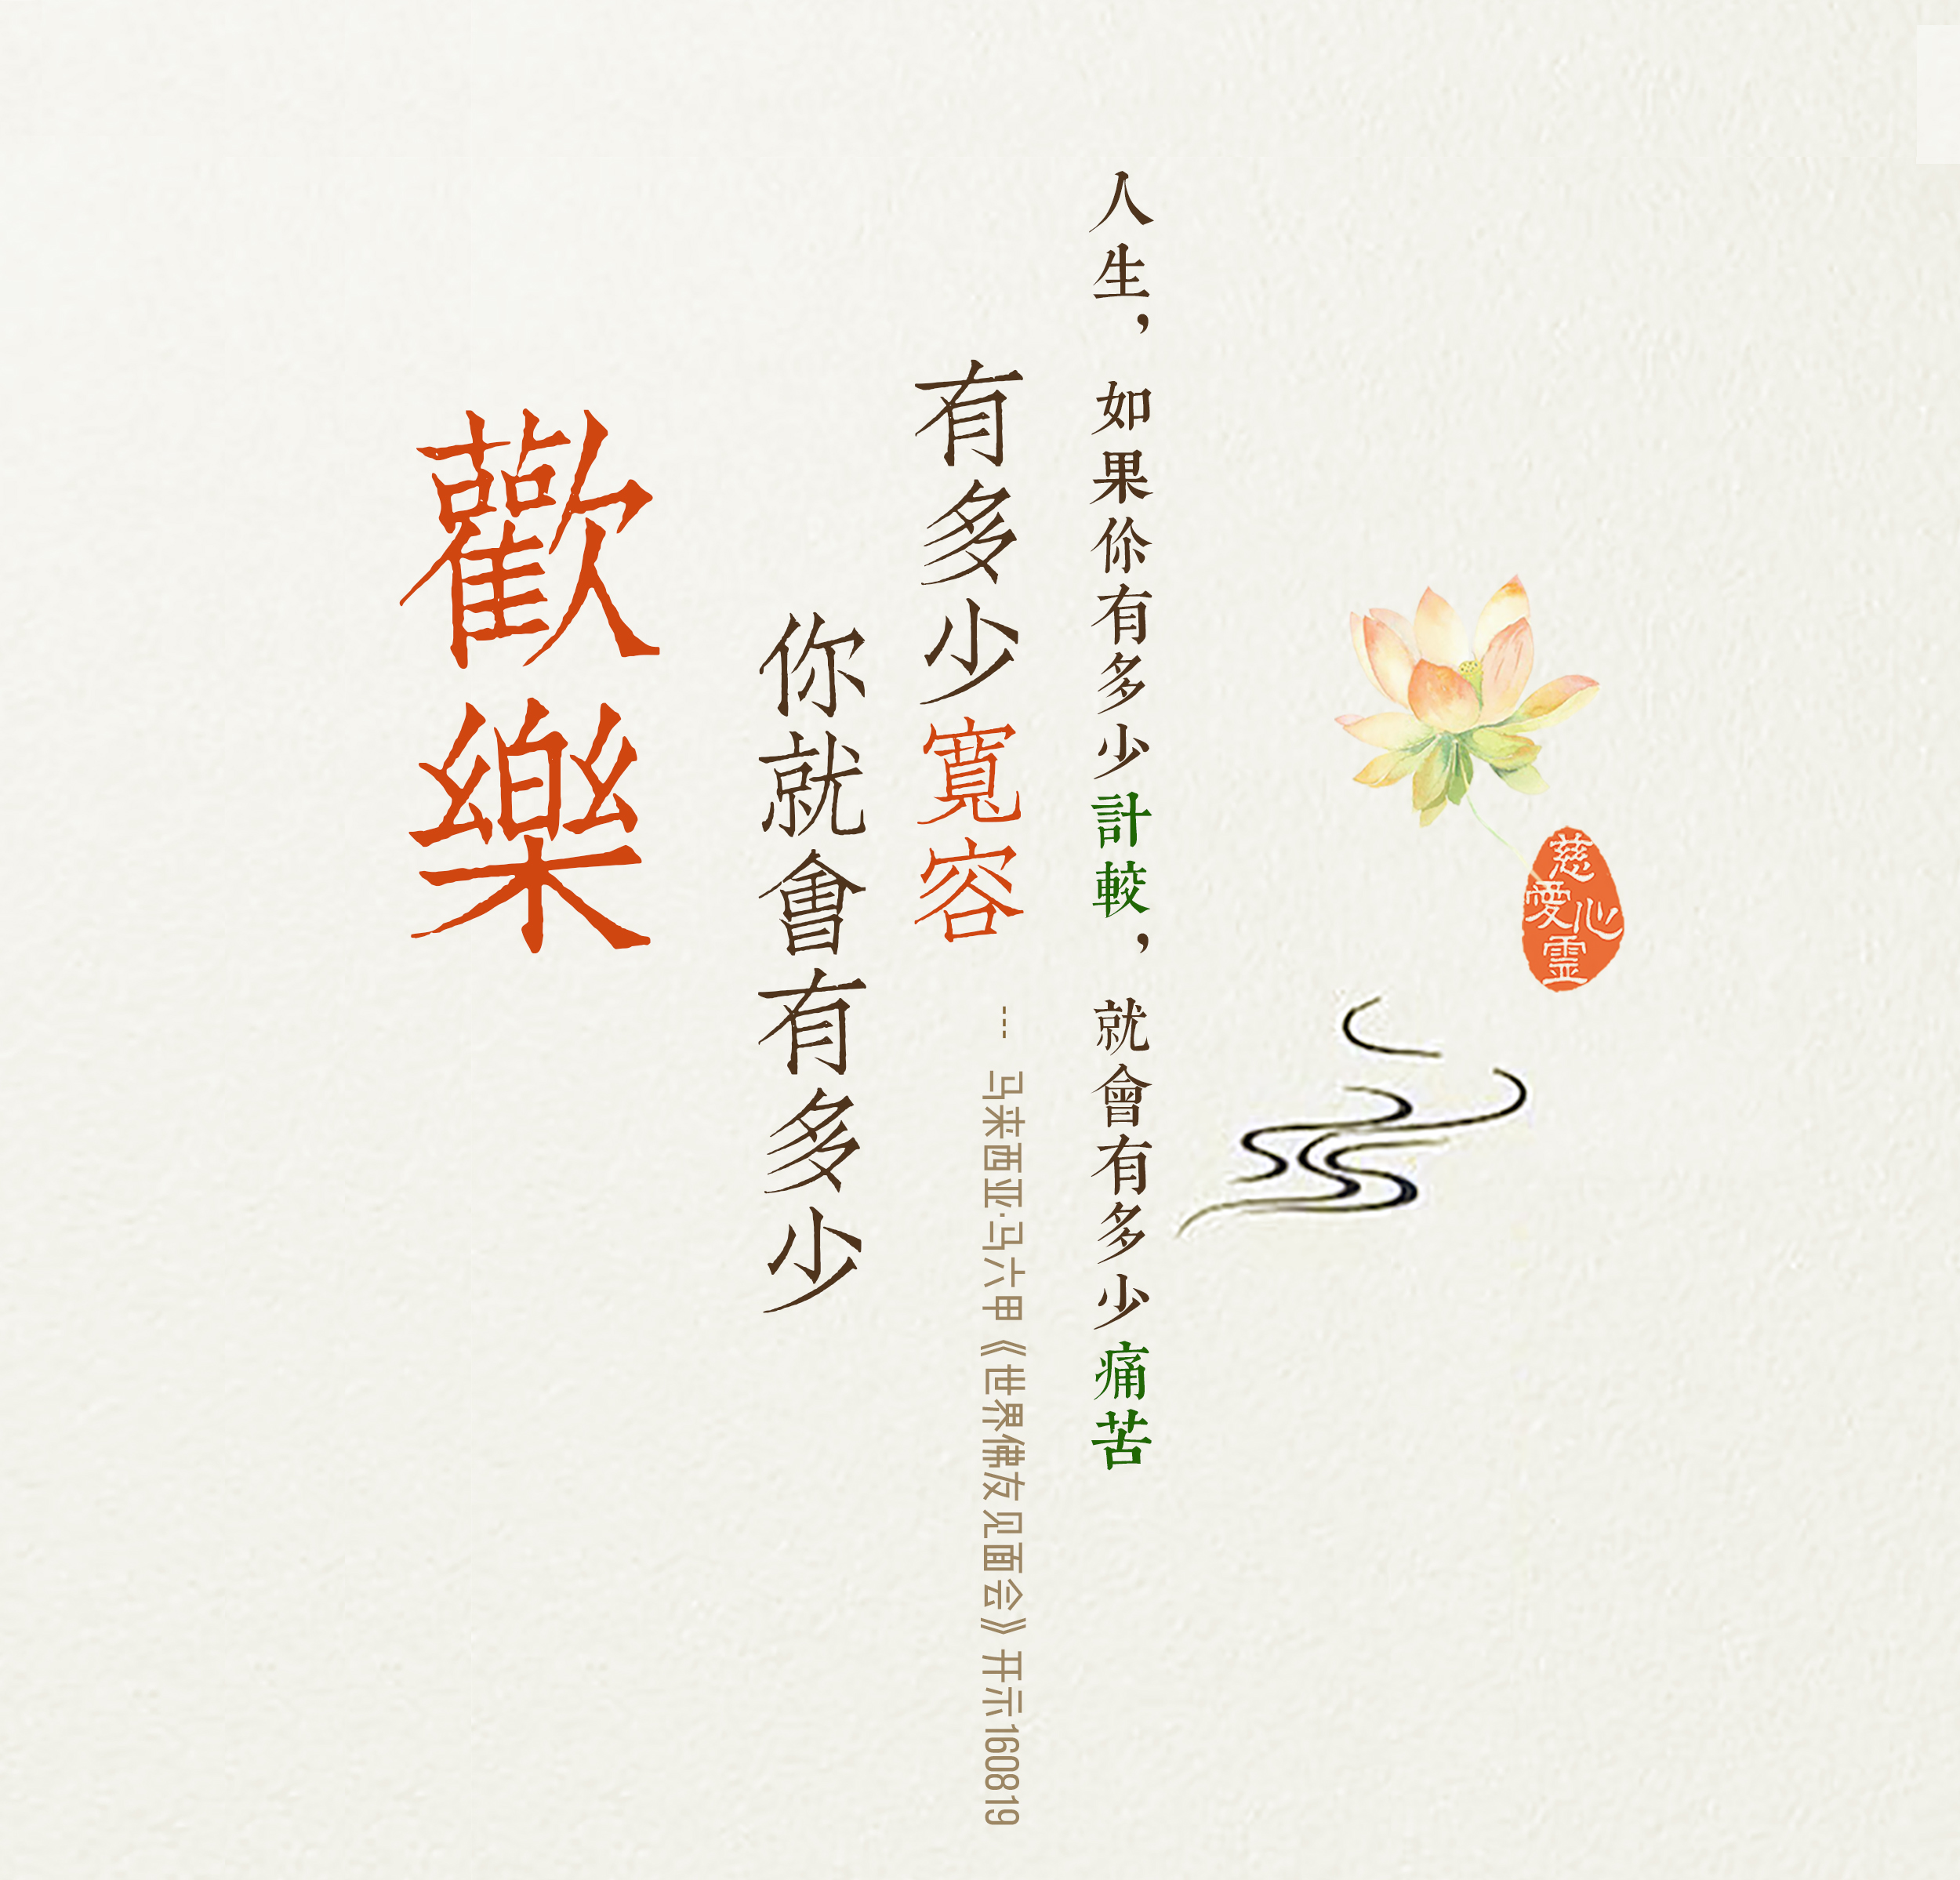 人生，如果你有多少計較，就會有多少痛苦
有多少寬容
你就會有多少
歡樂
--- 马来西亚·马六甲《世界佛友见面会》开示160819
慈愛心靈